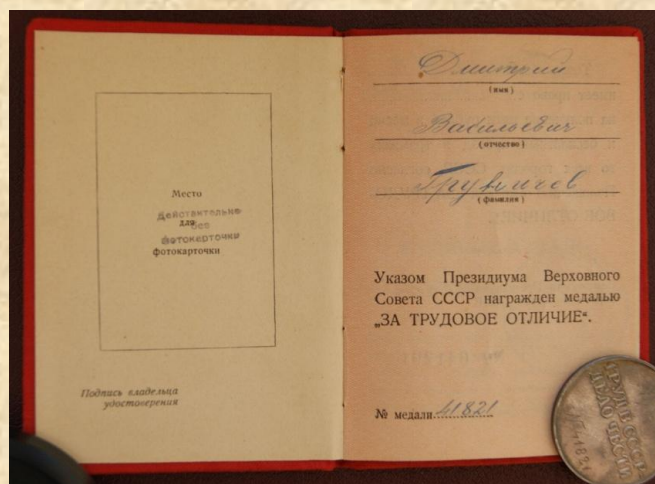 Место
Действительно
для без
фотокарточки
фотокарточки
Подпись владельца
удостоверения
Дмитрий
(имя)
Васильевич
(отчество)
(фамилия)
Указом Президиума Верховного
Совета СССР награжден медалью
„ЗА ТРУДОВОЕ ОТЛИЧИЕ“.
№ медали 41821
ТРУД В СССР
ДЕЛО ЧЕСТИ
41821